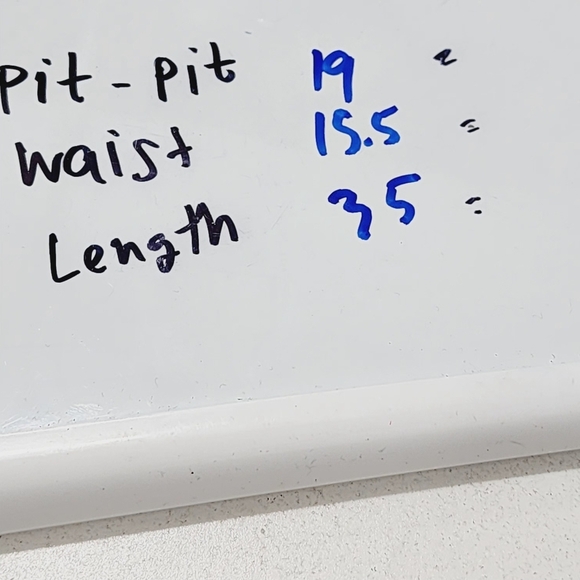 pit - pit 19 "
waist 15.5 "
Length 35 "